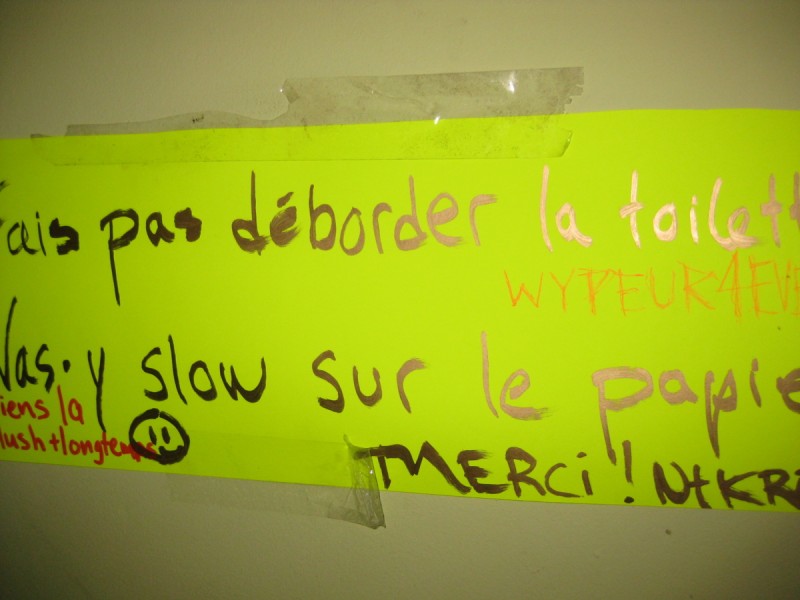 Fais pas déborder la toilett
WYPEUR4EVE
Vas-y slow sur le papie
tiens la
flush + longtemps
MERCi! N+KRi